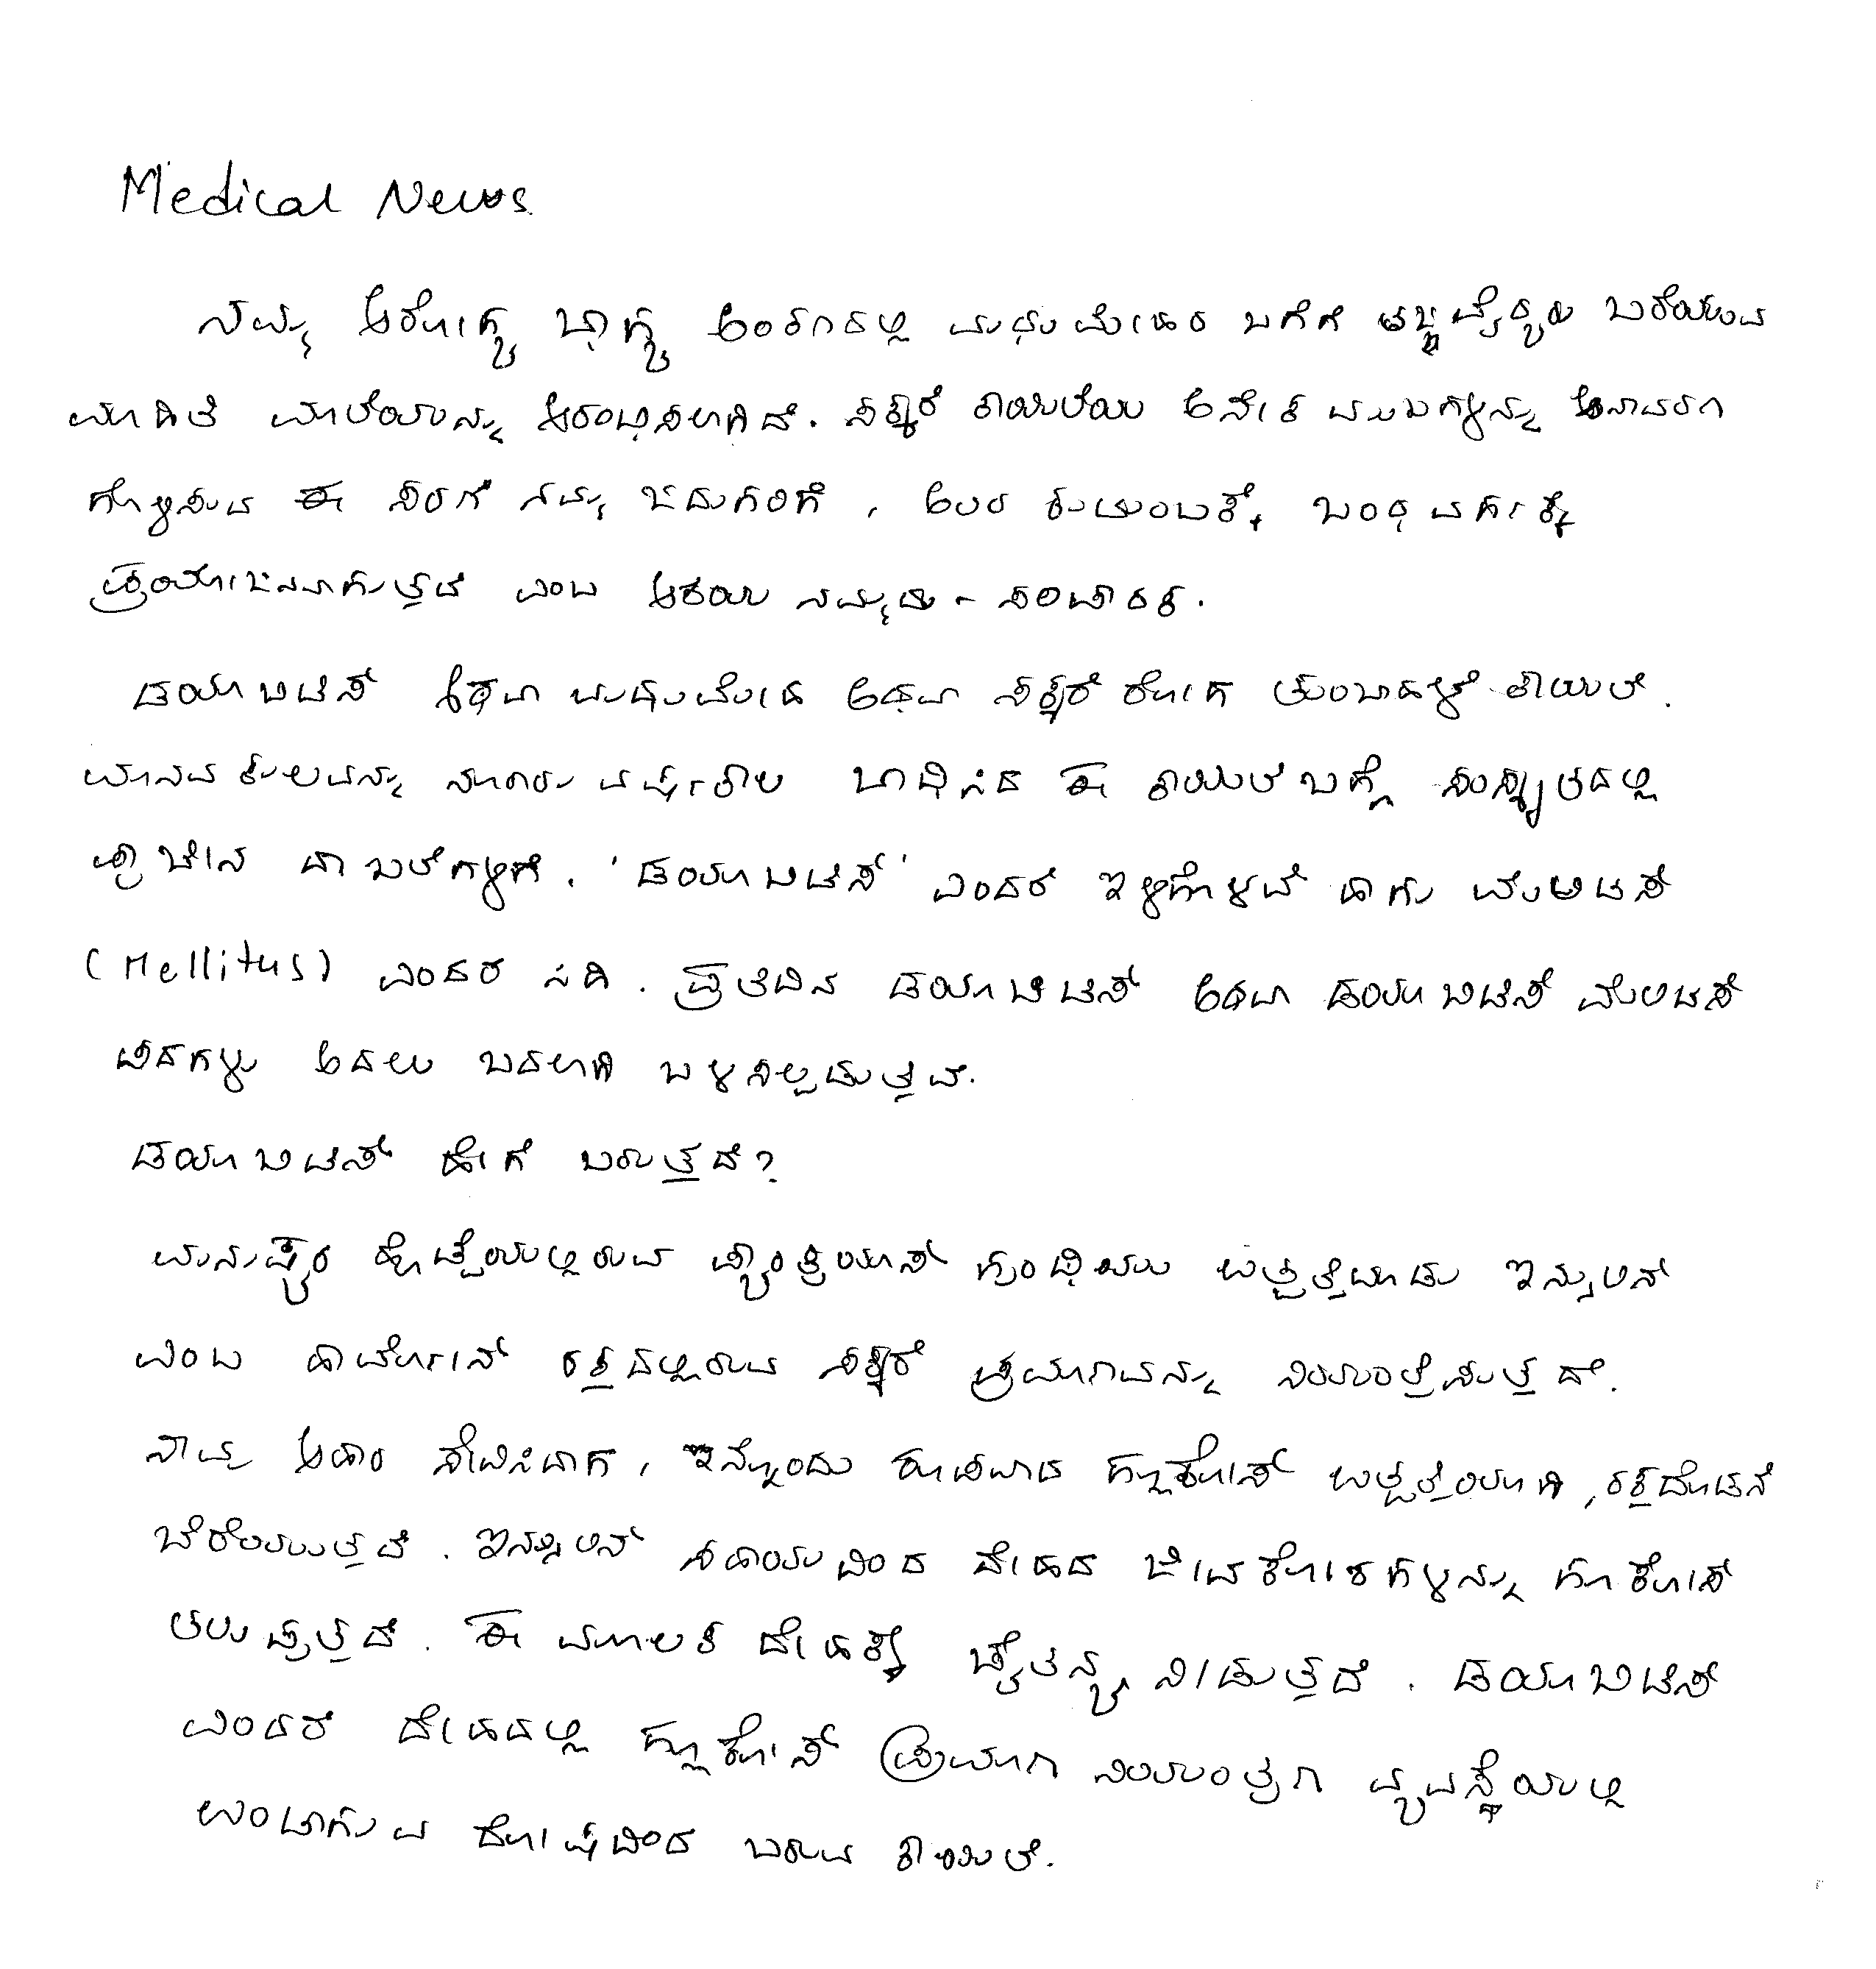 Medical News
ನಮ್ಮ ಆರೋಗ್ಯ ಭಾಗ್ಯ ಅಂಕಣದಲ್ಲಿ ಮಧುಮೇಹದ ಬಗೆಗೆ ತಜ್ಞವೈದ್ಯರು ಬರೆಯುವ
ಮಾಹಿತಿ ಮಾಲೆಯನ್ನು ಆರಂಭಿಸಲಾಗಿದೆ. ಸಕ್ಕರೆ ಕಾಯಿಲೆಯ ಅನೇಕ ಮುಖಗಳನ್ನು ಅನಾವರಣ
ಗೊಳಿಸುವ ಈ ಸರಣಿ ನಮ್ಮ ಓದುಗರಿಗೆ, ಅವರ ಕುಟುಂಬಕ್ಕೆ, ಬಂಧು ವರ್ಗಕ್ಕೆ
ಪ್ರಯೋಜನವಾಗುತ್ತದೆ ಎಂಬ ಆಶಯ ನಮ್ಮದು - ಸಂಪಾದಕ.
ಡಯಾಬಿಟಿಸ್ ಅಥವಾ ಮಧುಮೇಹ ಅಥವಾ ಸಕ್ಕರೆ ರೋಗ ತುಂಬಾಹಳೆ ಕಾಯಿಲೆ.
ಮಾನವ ಕುಲವನ್ನು ನೂರಾರು ವರ್ಷಕಾಲ ಬಾಧಿಸಿದ ಈ ಕಾಯಿಲೆ ಬಗ್ಗೆ ಸಂಸ್ಕೃತದಲ್ಲಿ
ಪ್ರಾಚೀನ ದಾಖಲೆಗಳಿಗೆ. 'ಡಯಾಬಿಟಿಸ್' ಎಂದರೆ ಇಳಿಗೊಳವೆ ಹಾಗು ಮೆಲಿಟಸ್
(Mellitus) ಎಂದರೆ ಸಿಹಿ. ಪ್ರತಿದಿನ ಡಯಾಬಿಟಿಸ್ ಅಥವಾ ಡಯಾಬಿಟಿಸ್ ಮೆಲಿಟಸ್
ಪದಗಳು ಅದಲು ಬದಲಾಗಿ ಬಳಸಲ್ಪಡುತ್ತವೆ.
ಡಯಾಬಿಟಿಸ್ ಹೇಗೆ ಬರುತ್ತದೆ?
ಮನುಷ್ಯರ ಹೊಟ್ಟೆಯಲ್ಲಿರುವ ಪ್ಯಾಂಕ್ರಿಯಾಸ್ ಗ್ರಂಥಿಯು ಉತ್ಪತ್ತಿಮಾಡು ಇನ್ಸುಲಿನ್
ಎಂಬ ಹಾರ್ಮೋನ್ ರಕ್ತದಲ್ಲಿರುವ ಸಕ್ಕರೆ ಪ್ರಮಾಣವನ್ನು ನಿಯಂತ್ರಿಸುತ್ತದೆ.
ನಾವು ಆಹಾರ ಸೇವಿಸಿದಾಗ, ಇನ್ನೊಂದು ರೂಪವಾದ ಗ್ಲೂಕೋಸ್ ಉತ್ಪತ್ತಿಯಾಗಿ, ರಕ್ತದೊಡನೆ
ಬೆರೆಯುತ್ತದೆ. ಇನ್ಸುಲಿನ್ ಸಹಾಯದಿಂದ ದೇಹದ ಜೀವಕೋಶಗಳನ್ನು ಗ್ಲೂಕೋಸ್
ತಲುಪುತ್ತದೆ. ಈ ಮೂಲಕ ದೇಹಕ್ಕೆ ಚೈತನ್ಯ ನೀಡುತ್ತದೆ. ಡಯಾಬಿಟಿಸ್
ಎಂದರೆ ದೇಹದಲ್ಲಿ ಗ್ಲೂಕೋಸ್ ಪ್ರಮಾಣ ನಿಯಂತ್ರಣ ವ್ಯವಸ್ಥೆಯಲ್ಲಿ
ಉಂಟಾಗುವ ದೋಷದಿಂದ ಬರುವ ಕಾಯಿಲೆ.